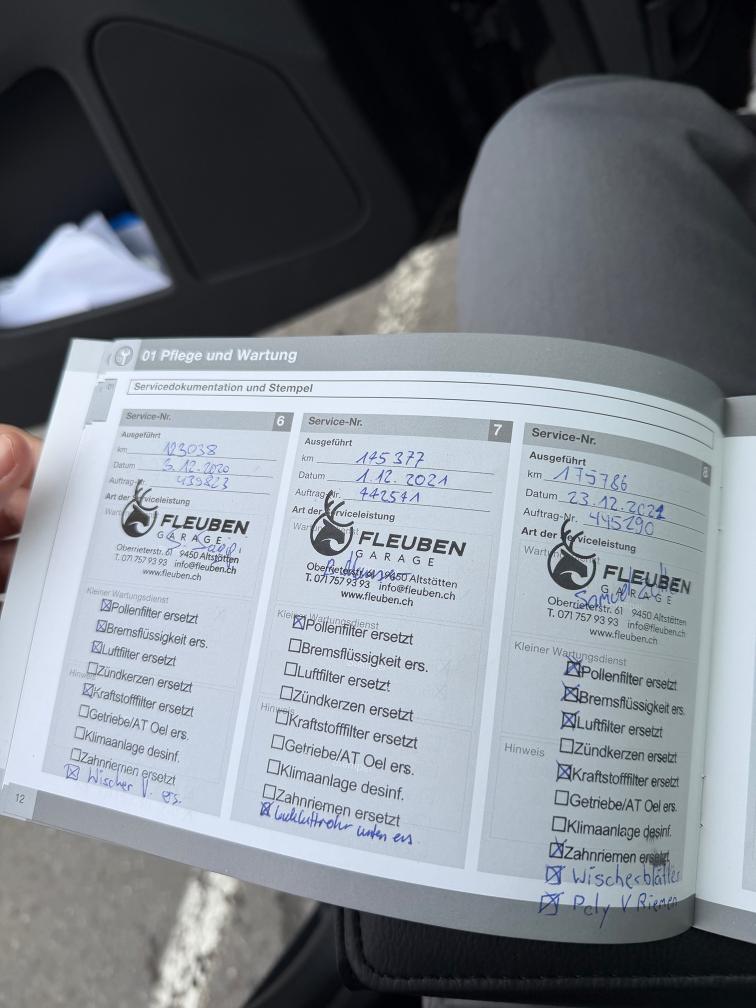 01 Pflege und Wartung
Servicedokumentation und Stempel
Service-Nr. 6
Ausgeführt
km 123038
Datum 5.12.2020
Auftrag-Nr. 439823
Art der Serviceleistung
FLEUBEN
GARAGE
Oberrieterstr. 61 9450 Altstätten
T. 071 757 93 93 info@fleuben.ch
www.fleuben.ch
Kleiner Wartungsdienst
☒Pollenfilter ersetzt
☒Bremsflüssigkeit ers.
☒Luftfilter ersetzt
☐Zündkerzen ersetzt
Hinweis
☒Kraftstofffilter ersetzt
☐Getriebe/AT Oel ers.
☐Klimaanlage desinf.
☐Zahnriemen ersetzt
☒ Wischer V. ers.
12
Service-Nr. 7
Ausgeführt
km 145377
Datum 1.12.2021
Auftrag-Nr. 442541
Art der Serviceleistung
FLEUBEN
GARAGE
Oberrieterstr. 61 9450 Altstätten
T. 071 757 93 93 info@fleuben.ch
www.fleuben.ch
Kleiner Wartungsdienst
☒Pollenfilter ersetzt
☐Bremsflüssigkeit ers.
☐Luftfilter ersetzt
☐Zündkerzen ersetzt
Hinweis
☐Kraftstofffilter ersetzt
☐Getriebe/AT Oel ers.
☐Klimaanlage desinf.
☐Zahnriemen ersetzt
☒ unten ers
Service-Nr. 8
Ausgeführt
km 175786
Datum 23.12.2022
Auftrag-Nr. 445290
Art der Serviceleistung
FLEUBEN
GARAGE
Samuel
Oberrieterstr. 61 9450 Altstätten
T. 071 757 93 93 info@fleuben.ch
www.fleuben.ch
Kleiner Wartungsdienst
☒Pollenfilter ersetzt
☒Bremsflüssigkeit ers.
☒Luftfilter ersetzt
☐Zündkerzen ersetzt
Hinweis
☒Kraftstofffilter ersetzt
☐Getriebe/AT Oel ers.
☐Klimaanlage desinf.
☒Zahnriemen ersetzt
☒ Wischerblätter
☒ Poly V Riemen